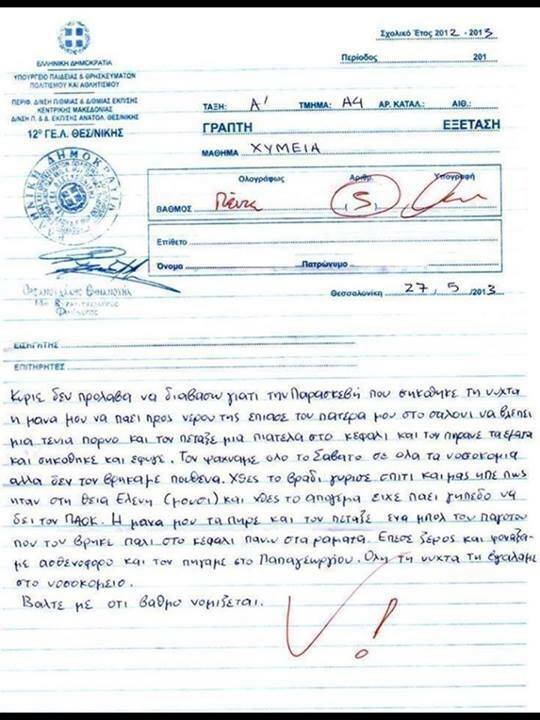 Σχολικό Έτος 2012 - 2013
Περίοδος 201
ΕΛΛΗΝΙΚΗ ΔΗΜΟΚΡΑΤΙΑ
ΥΠΟΥΡΓΕΙΟ ΠΑΙΔΕΙΑΣ & ΘΡΗΣΚΕΥΜΑΤΩΝ
ΠΟΛΙΤΙΣΜΟΥ ΚΑΙ ΑΘΛΗΤΙΣΜΟΥ
ΠΕΡΙΦ. Δ/ΝΣΗ Π/ΘΜΙΑΣ & Δ/ΘΜΙΑΣ ΕΚΠ/ΣΗΣ
ΚΕΝΤΡΙΚΗΣ ΜΑΚΕΔΟΝΙΑΣ
Δ/ΝΣΗ Π. & Δ. ΕΚΠ/ΣΗΣ ΑΝΑΤΟΛ. ΘΕΣ/ΝΙΚΗΣ
12º ΓΕ.Λ. ΘΕΣ/ΝΙΚΗΣ
ΤΑΞΗ: Α' ΤΜΗΜΑ: Α4 ΑΡ. ΚΑΤΑΛ.: ΑΙΘ.:
ΓΡΑΠΤΗ ΕΞΕΤΑΣΗ
ΜΑΘΗΜΑ ΧΥΜΕΙΑ
Ολογράφως Αριθμ. Υπογραφή
ΒΑΘΜΟΣ Πέντε 5
Επίθετο
Όνομα Πατρώνυμο
Θεσσαλονίκη 27, 5 /2013
ΕΙΣΗΓΗΤΗΣ
ΕΠΙΤΗΡΗΤΕΣ
Κυριε δεν προλαβα να διαβασω γιατι την Παρασκεβή που σηκωθηκε τη νυχτα
η μανα μου να παει προς νερου της επιασε τον πατερα μου στο σαλονι να βλεπει
μια τενια πορνο και τον πεταξε μια πιατελα στο κεφαλι και τον πηρανε τα εματα
και σηκοθηκε και εφυγε. Τον ψαχναμε ολο το Σαβατο σε ολα τα νοσοκομια
αλλα δεν τον βρηκαμε πουθενα. Χθες το βραδι γυρισε σπιτι και μας ηπε πως
ηταν στη θεια Ελενη (μουσι) και χθες το απογεμα ειχε παει γηπεδο να
δει τον ΠΑΟΚ. Η μανα μου τα πηρε και τον πεταξε ενα μπολ του παγοτου
που τον βρηκε παλι στο κεφαλι πανω στα ραματα. Επεσε ξερος και φοναξα-
με ασθενοφορο και τον πηγαμε στο Παπαγεωργιου. Ολη τη νυχτα τη βγαλαμε
στο νοσοκομειο.
Βαλτε με οτι βαθμο νομιζεται.